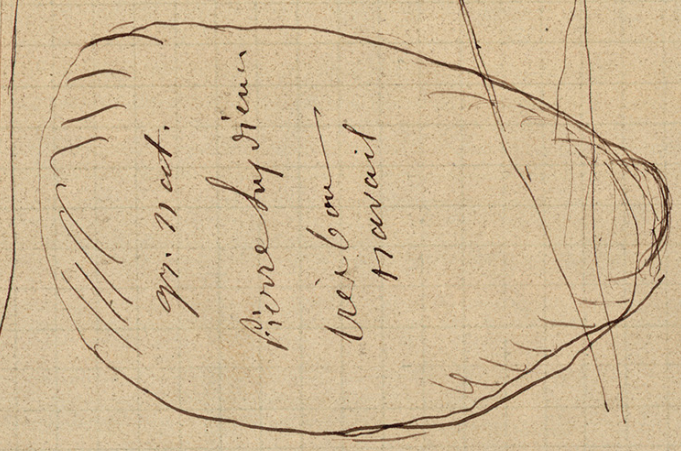 gr. nat.
Pierre lydienne
très bon
travail